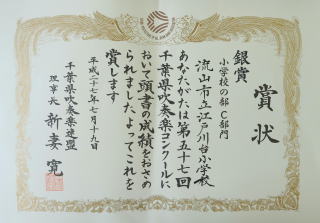 賞状
銀賞
小学校の部 C部門
流山市立江戸川台小学校
あなたがたは第五十七回
千葉県吹奏楽コンクールに
おいて頭書の成績をおさめ
られましたよってこれを
賞します
平成二十七年七月二十九日
千葉県吹奏楽連盟
理事長 新妻寛